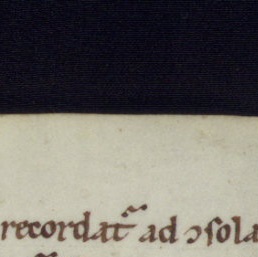 recordat᷑ ad ɔsola